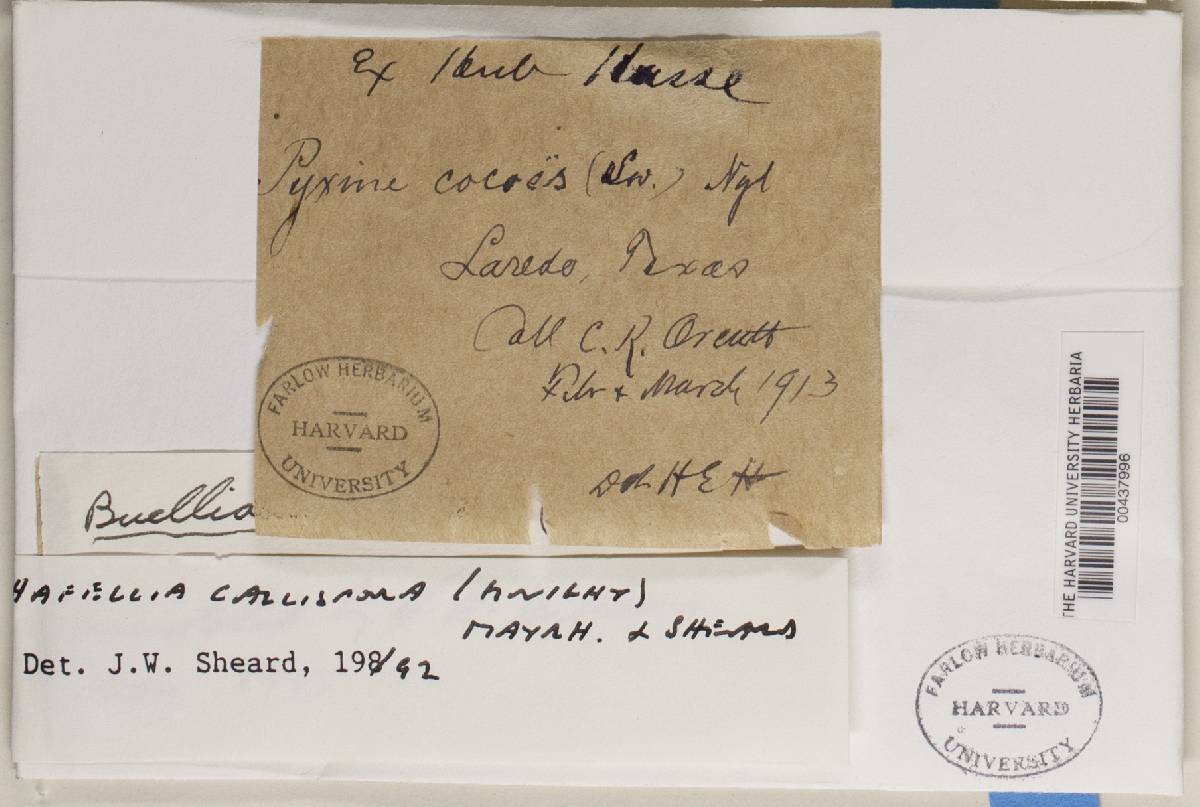 Ex Herb Hasse
Pyxine cocoës (Sw.) Nyl
Laredo, Texas
Coll C. R. Orcutt
Feb + March 1913
Det H E H
FARLOW HERBARIUM
HARVARD
UNIVERSITY
Buellia
HAFELLIA CALLISPORA (KNIGHT)
MAYRH. & SHEARD
Det. J.W. Sheard, 198/92
THE HARVARD UNIVERSITY HERBARIA
00437996
FARLOW HERBARIUM
HARVARD
UNIVERSITY